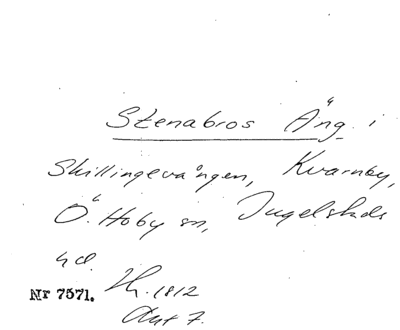 Stenabros Äng i
Skillingevången, Kvarnby,
Ö. Hoby sn, Ingelstads
hd.
Nr 7571.
Lh. 1812
Akt 7.